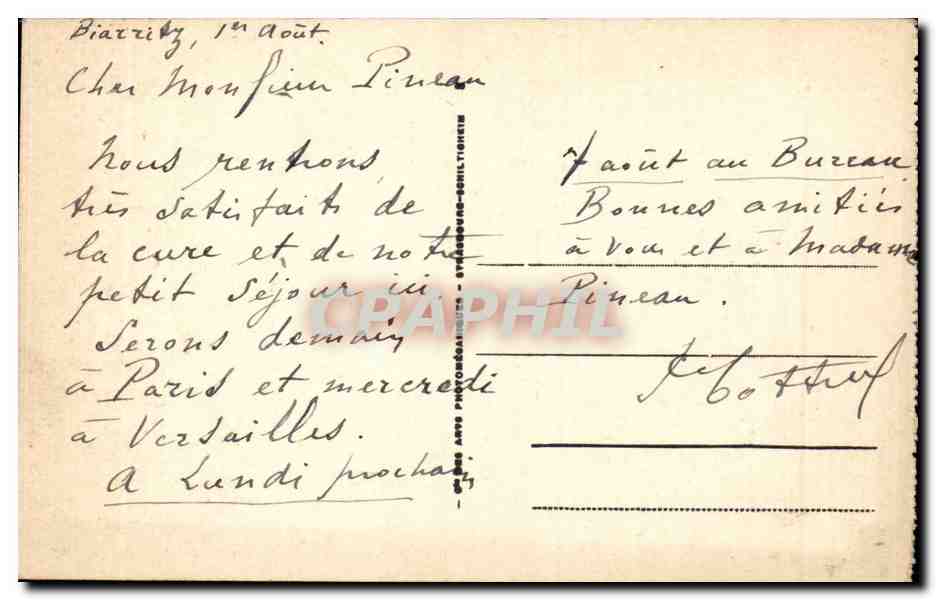 Biarritz, 1er Août.
Cher Monsieur Pineau
Nous rentrons
très satisfaits de
la cure et de notre
petit séjour ici.
Serons demain
à Paris et mercredi
à Versailles.
A Lundi prochain
7 août au Bureau
Bonnes amitiés
à vous et à Madame
Pineau.
ARTS PHOTOMÉCANIQUES - STRASBOURG-SCHILTIGHEIM
CPAPHIL